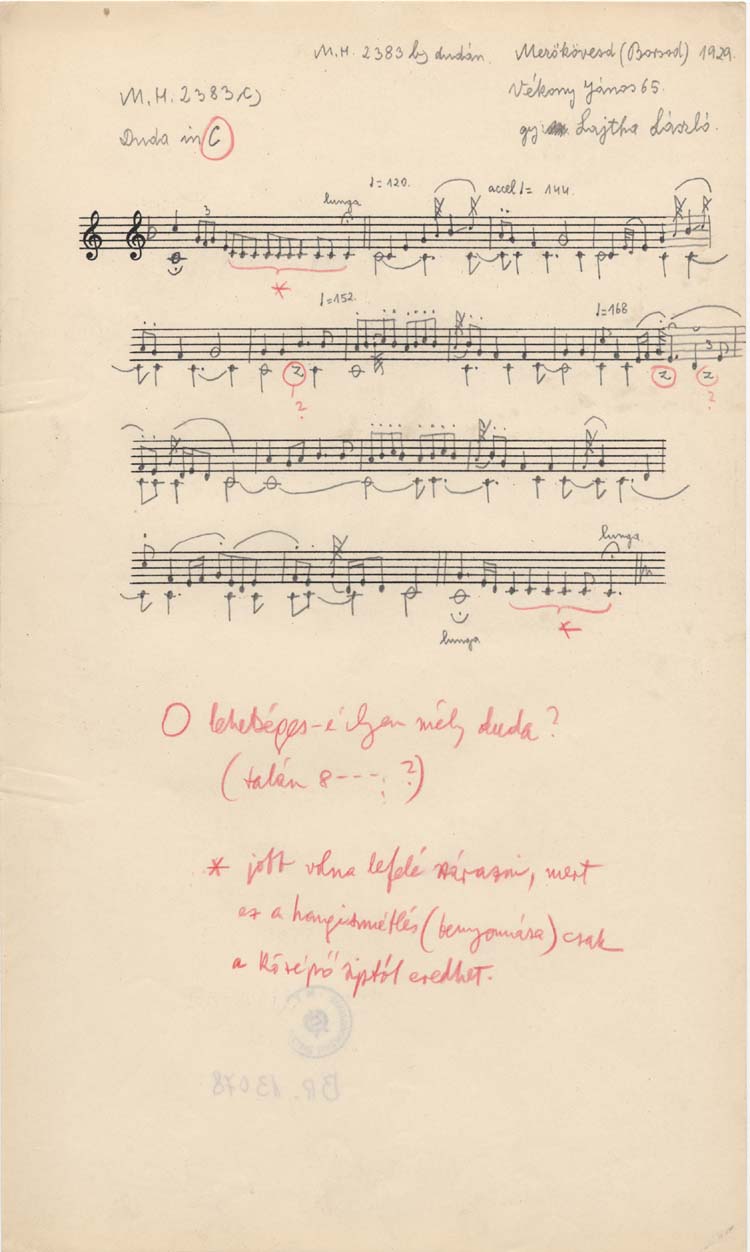 M.H. 2383 b) dudán.
Mezőkövesd (Borsod) 1929.
M.H. 2383 c)
Vékony János 65.
Duda in C
gy. Lajtha László.
♩= 120.
lunga
accel ♩= 144.
3
*
♩=152.
♩=168
3
z
z
z
?
?
lunga
lunga
*
O lehetséges-é ilyen mély duda?
(talán 8----; ?)
* jobb volna lefelé szárazni, mert
ez a hangismétlés (benyomása) csak
a középső síptól eredhet.
BR. 13078